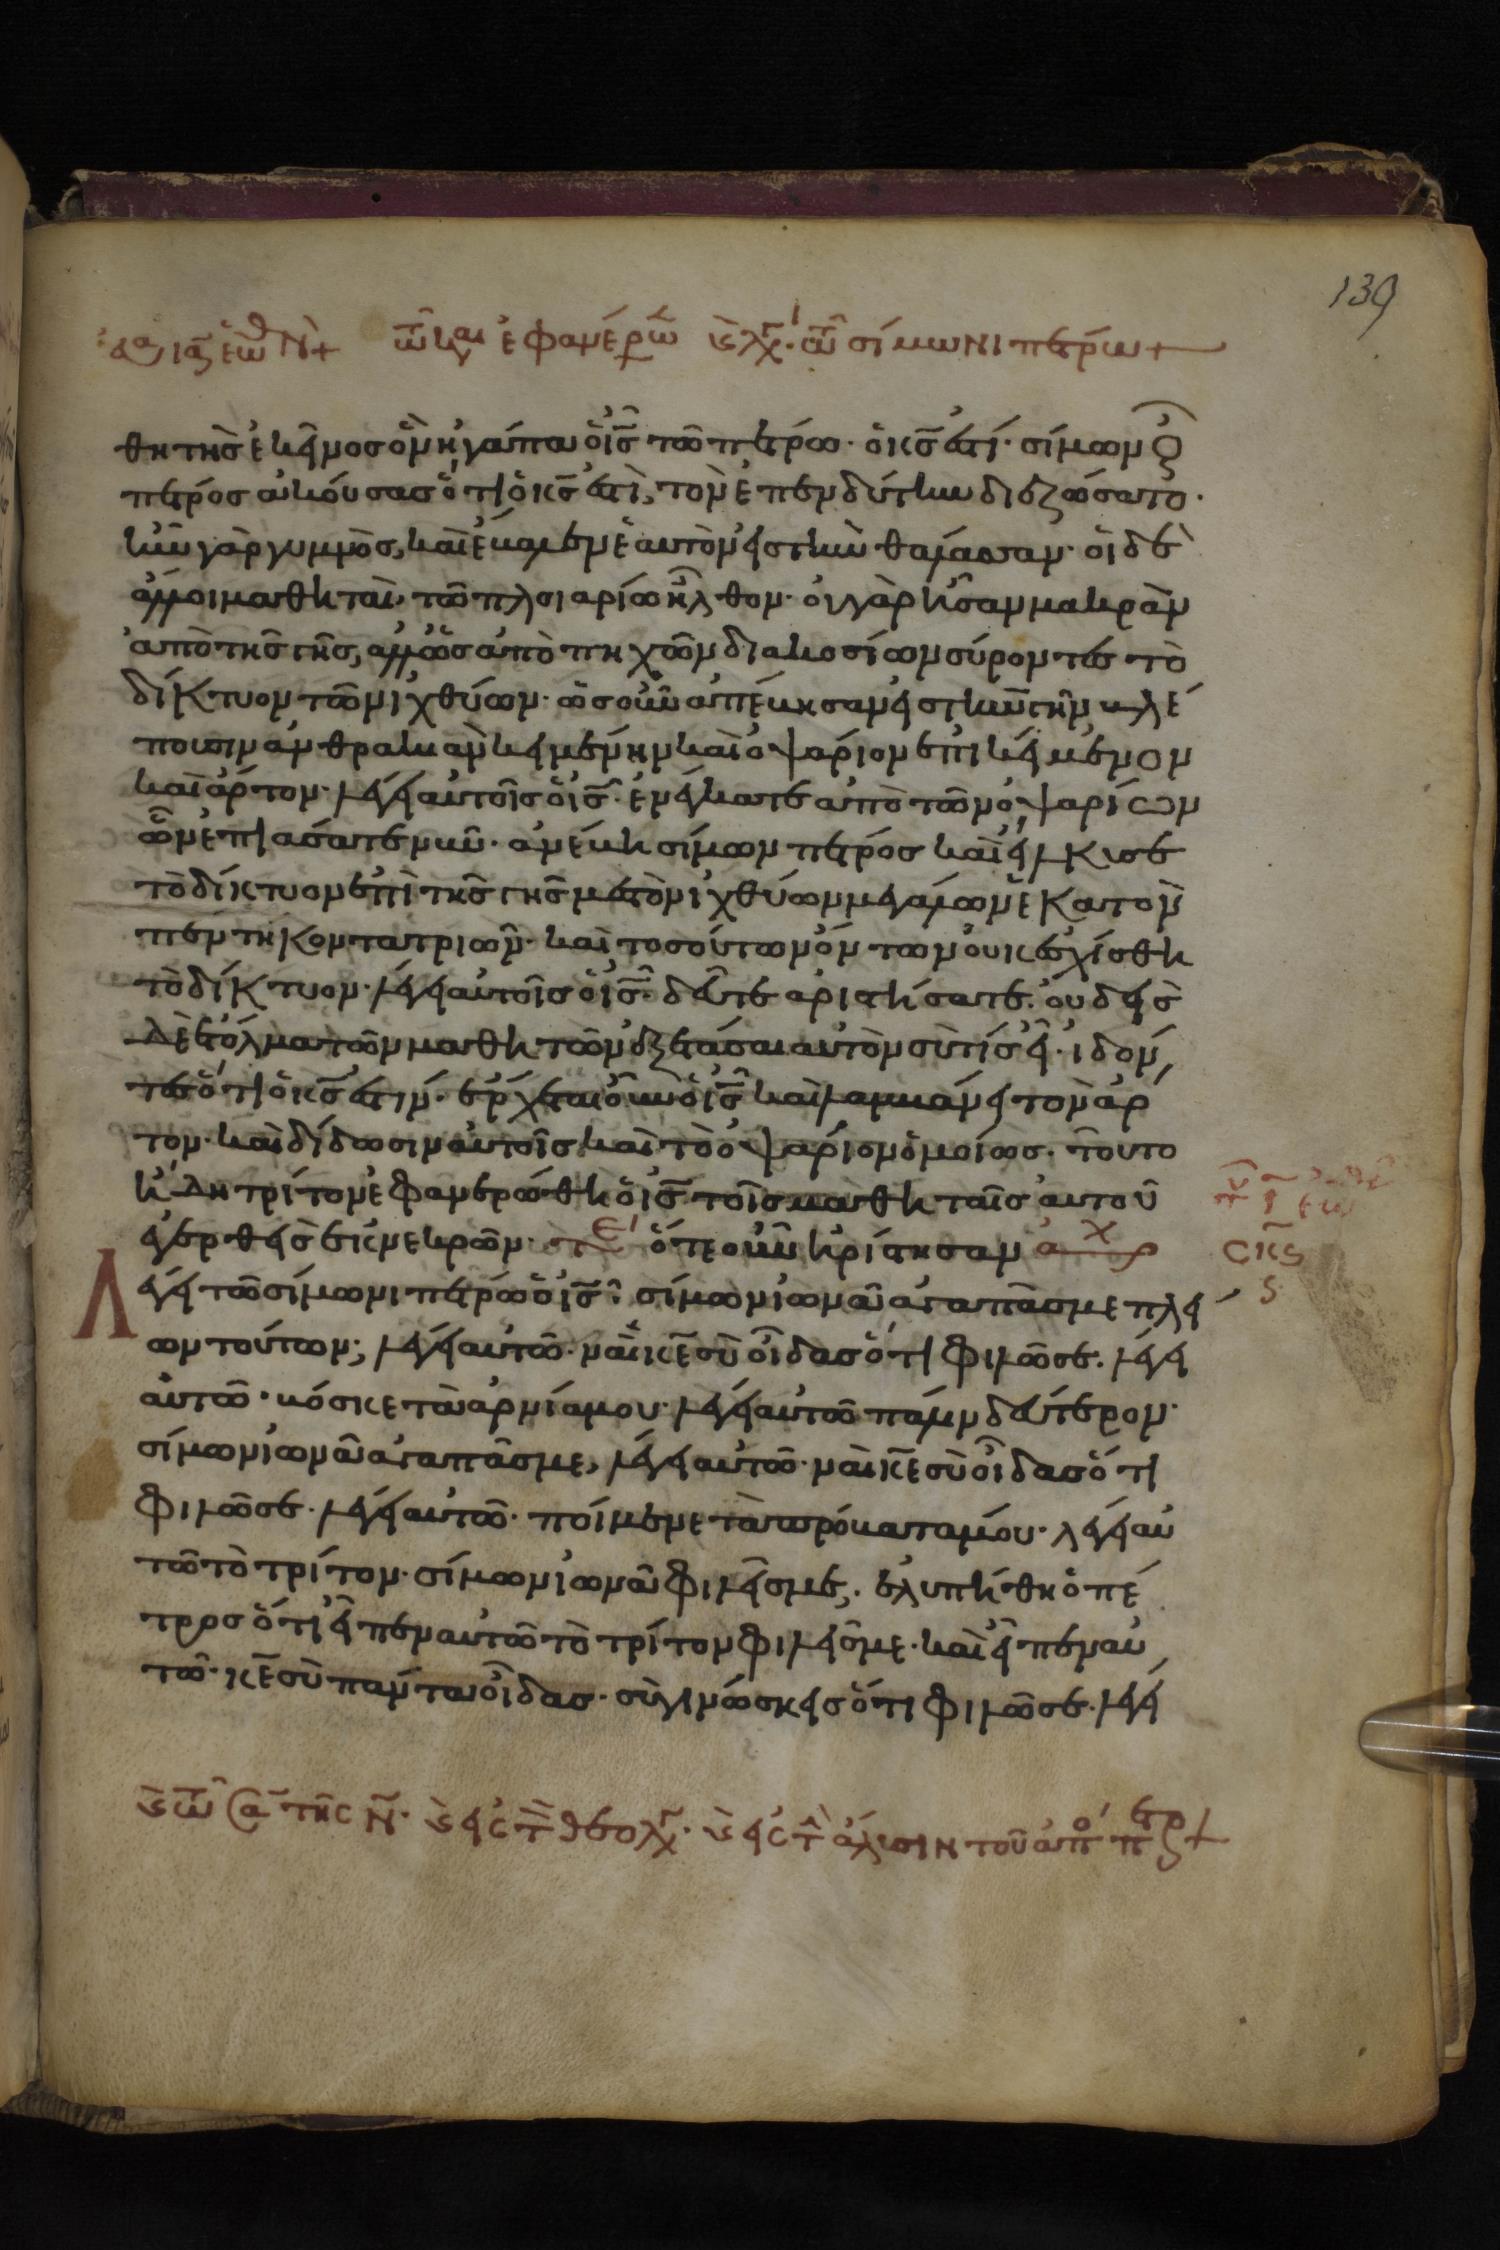 139
τῷ καιρῷ ἐφανέρω σίμωνι πέτρω +
θητὴς ἐκεῖνος ὃν ἠγάπα ὁ ἰς τῶ πέτρω· ὁ κς ἐστί· σίμων
πέτρος ἀκούσας ὅτι ὁ κς ἐστὶ, τὸν ἐπενδύτην διεζώσατο·
ἦν γὰρ γυμνὸς, καὶ ἔβαλεν ἑαυτὸν εἰς τὴν θάλασσαν· οἱ δὲ
ἄλλοι μαθηταὶ, τῶ πλοιαρίω ἦλθον· οὐ γὰρ ἦσαν μακρὰν
ἀπὸ τῆς γῆς, ἀλλ' ὡς ἀπὸ πηχῶν διακοσίων σύροντες τὸ
δίκτυον τῶν ἰχθύων· ὡς οὖν ἀπέβησαν εἰς τὴν γῆν βλέ
πουσιν ἀνθρακιὰν κειμένην καὶ ὀψάριον ἐπικείμενον
καὶ ἄρτον· λέγει αὐτοῖς ὁ ἰς· ἐνέγκατε ἀπὸ τῶν ὀψαρίων
ὧν ἐπιάσατε νῦν· ἀνέβη σίμων πέτρος καὶ εἵλκυσε
τὸ δίκτυον ἐπὶ τῆς γῆς μεστὸν ἰχθύων μεγάλων ἑκατὸν
πεντήκοντα τριῶν· καὶ τοσούτων ὄντων οὐκ ἐσχίσθη
τὸ δίκτυον· λέγει αὐτοῖς ὁ ἰς· δεῦτε ἀριστήσατε· οὐδεὶς
δὲ ἐτόλμα τῶν μαθητῶν ἐξετάσαι αὐτὸν σὺ τίς εἶ· ἰδόν
τες ὅτι ὁ κς ἐστιν· ἔρχεται οὖν ὁ ἰς καὶ λαμβάνει τὸν ἄρ
τον· καὶ δίδωσιν αὐτοῖς καὶ τὸ ὀψάριον ὁμοίως· τοῦτο
ἤδη τρίτον ἐφανερώθη ὁ ἰς τοῖς μαθηταῖς αὐτοῦ
ἐγερθεὶς ἐκ νεκρῶν· ὅτε οὖν ἠρίστησαν
λέγει τῶ σίμωνι πέτρω ὁ ἰς· σίμων ἰωνᾶ ἀγαπᾶς με πλεῖ
ον τούτων; λέγει αὐτῶ· ναὶ κε σὺ οἶδας ὅτι φιλῶ σε· λέγει
αὐτῶ· βόσκε τὰ ἀρνία μου· λέγει αὐτῶ πάλιν δεύτερον·
σίμων ἰωνᾶ ἀγαπᾶς με, λέγει αὐτῶ· ναὶ κε σὺ οἶδας ὅτι
φιλῶ σε· λέγει αὐτῶ· ποίμενε τὰ πρόβατά μου· λέγει αὐ
τῶ τὸ τρίτον· σίμων ἰωνᾶ φιλεῖς με; ἐλυπήθη ὁ πέ
τρος ὅτι εἶπεν αὐτῶ τὸ τρίτον φιλεῖς με· καὶ εἶπεν αὐ
τῶ· κε σὺ πάντα οἶδας· σὺ γινώσκεις ὅτι φιλῶ σε· λέγει